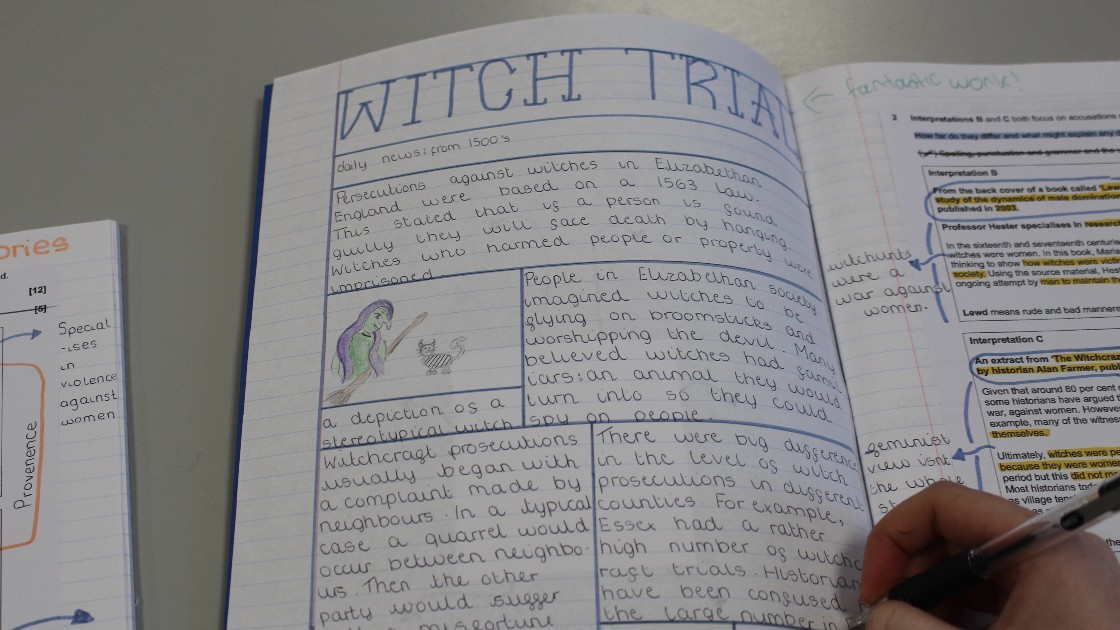 ories
d.
[12]
[6]
Special
-ises
in
violence
against
women
Provenence
WITCH TRIAL
daily news: from 1500's
Persecutions against witches in Elizabethan
England were based on a 1563 law.
This stated that if a person is found
guilty they will face death by hanging.
Witches who harmed people or property were
imprisoned
People in Elizabethan society
imagined witches to be
flying on broomsticks and
worshipping the devil. Many
believed witches had famil
iars: an animal they would
turn into so they could
spy on people.
a depiction of a
stereotypical witch
Witchcraft prosecutions
usually began with
a complaint made by
neighbours. In a typical
case a quarrel would
occur between neighbo-
us. Then the other
party would suffer
misfortune
There were big difference
in the level of witch
prosecutions in different
counties. For example,
Essex had a rather
high number of witchc
raft trials. Historian
have been confused
the large number in
← fantastic work!
2 Interpretations B and C both focus on accusations
How far do they differ and what might explain any
Spelling, punctuation and grammar and the
Interpretation B
From the back cover of a book called 'Lew
study of the dynamics of male domination
published in 2003.
Professor Hester specialises in researc
In the sixteenth and seventeenth centurie
witches were women. In this book, Maria
thinking to show how witches were victi
society. Using the source material, Hes
ongoing attempt by men to maintain the
Lewd means rude and bad mannere
witchunts
were a
war against
women.
Interpretation C
An extract from 'The Witchcraz
by historian Alan Farmer, publ
Given that around 80 per cent
some historians have argued t
war, against women. Howeve
example, many of the witness
themselves.
Ultimately, witches were pe
because they were wome
period but this did not m
Most historians tod
as village ten
feminist
view isnt
the whole